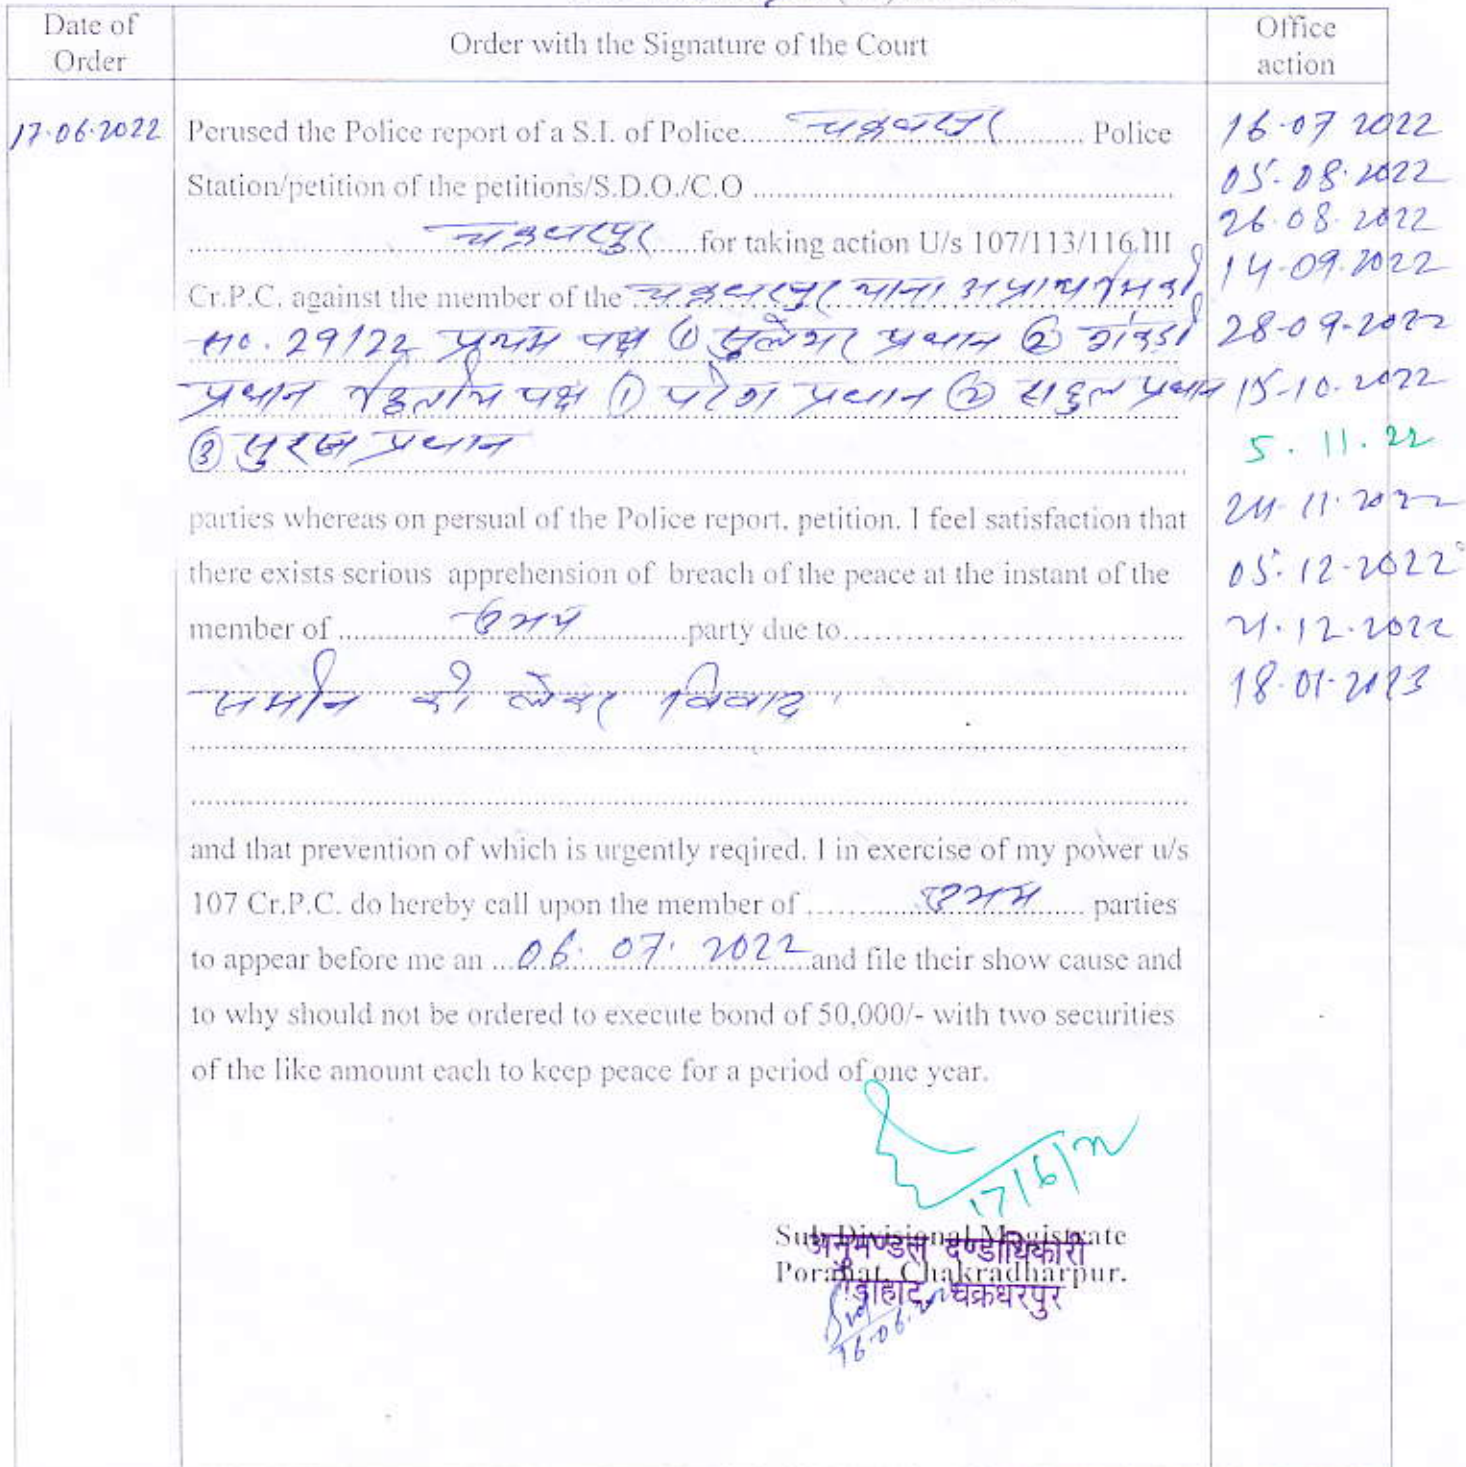 Date of Order
Order with the Signature of the Court
Office action
17.06.2022
Perused the Police report of a S.I. of Police.... चक्रधरपुर .... Police
Station/petition of the petitions/S.D.O./C.O ....
.... चक्रधरपुर ....for taking action U/s 107/113/116.III
Cr.P.C. against the member of the चक्रधरपुर थाना अप्राथमिकी
सं०. 29/22 प्रथम पक्ष ① प्रधान ②
प्रधान द्वितीय पक्ष ① परेश प्रधान ② राहुल प्रधान
③ प्रधान
parties whereas on persual of the Police report, petition. I feel satisfaction that
there exists serious apprehension of breach of the peace at the instant of the
member of .... उभय ....party due to....
जमीन को लेकर विवाद।
and that prevention of which is urgently reqired. I in exercise of my power u/s
107 Cr.P.C. do hereby call upon the member of .... उभय .... parties
to appear before me an ...06.07.2022...and file their show cause and
to why should not be ordered to execute bond of 50,000/- with two securities
of the like amount each to keep peace for a period of one year.
17/6/22
Sub Divisional Magistrate
Porahat, Chakradharpur.
अनुमण्डल दण्डाधिकारी
पोड़ाहाट, चक्रधरपुर
16.06.22
16.07.2022
05.08.2022
26.08.2022
14.09.2022
28.09.2022
15.10.2022
5.11.22
24.11.2022
05.12.2022
21.12.2022
18.01.2023